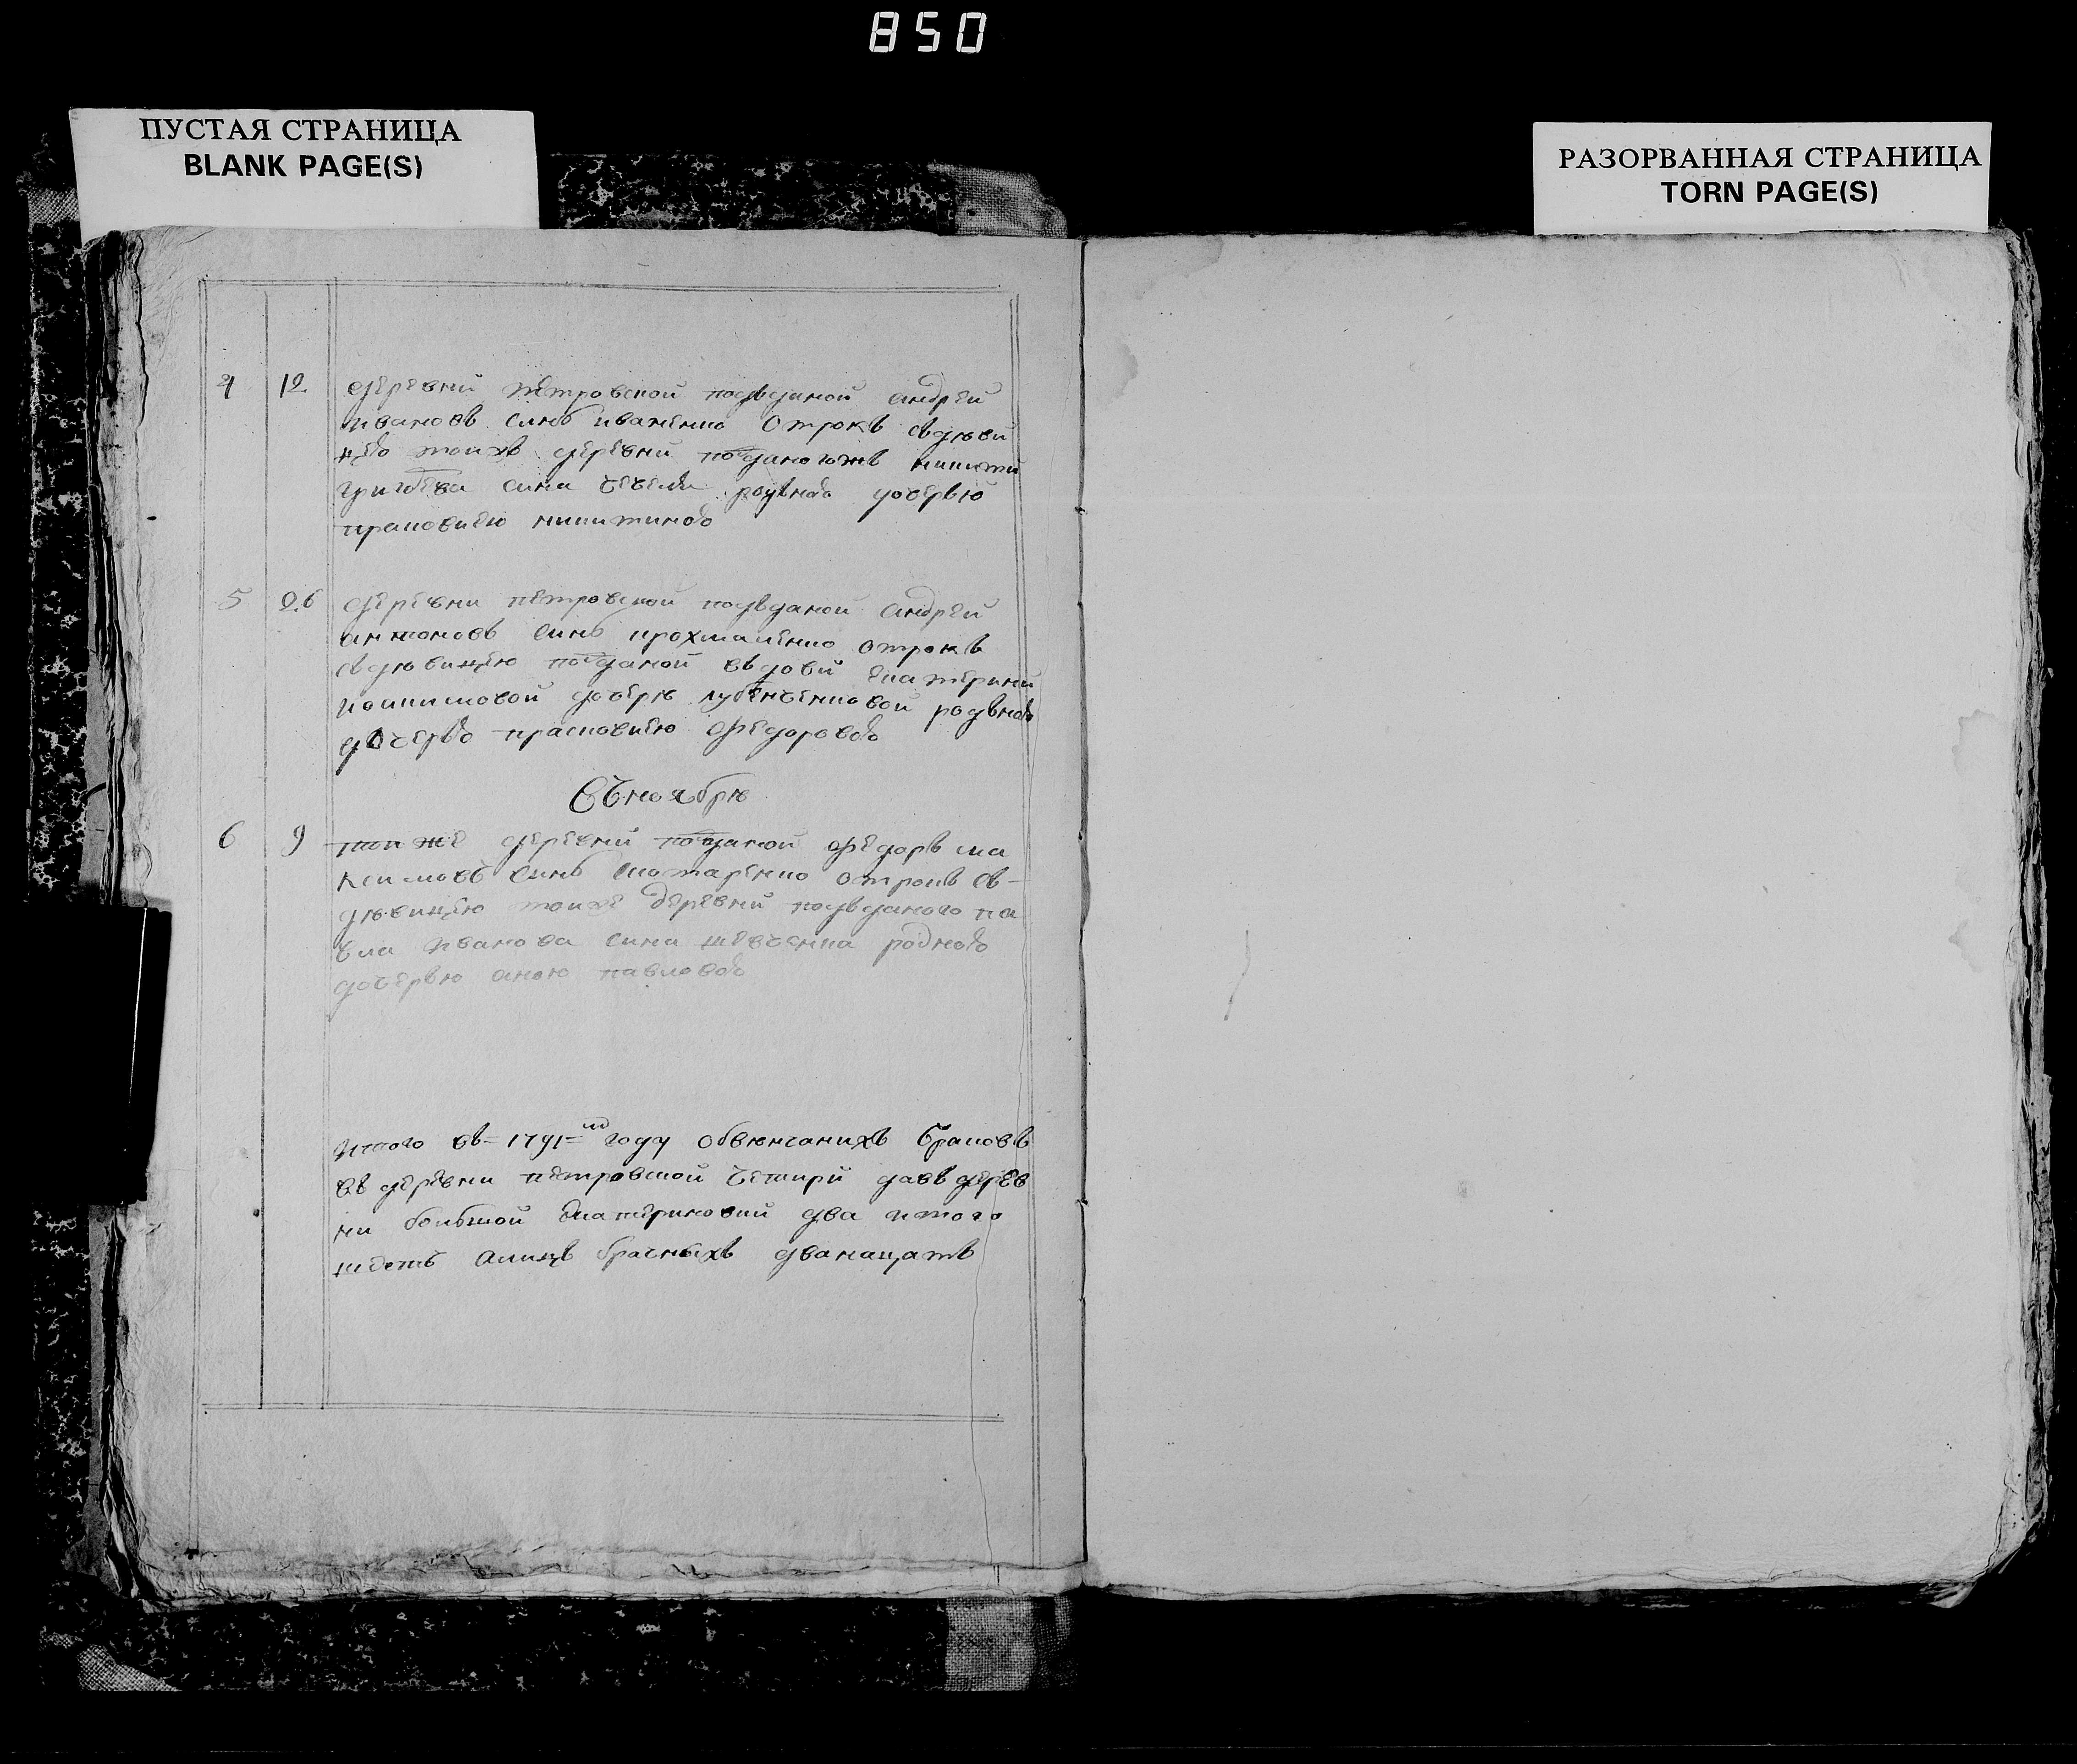 850
ПУСТАЯ СТРАНИЦА
BLANK PAGE(S)
РАЗОРВАННАЯ СТРАНИЦА
TORN PAGE(S)
4 12 деревни петровской подъданой андрей
ивановъ синъ иваненко отрокъ здѣви
цею тоижъ деревни подданогожъ никити
григорева сина родъною дочерью
прасковиею никитиною
5 26 деревни петровской подъданой андрей
антоновъ синъ отрокъ
здѣвицею подданой въдови екатерини
дочерѣ лубенченковой родъною
дочерью прасковиею федоровою
Въ ноябрѣ
6 9 тои же деревни подданой федоръ ма
ксимовъ синъ отрокъ зъ
дѣвицею тоиже деревни подъданого па
вла иванова сина шевченка родною
дочерью аною павловою
итого въ 1791 м году обвѣнчанихъ браковъ
въ деревни петровской четири давъ дерев
ни болшой екатериновки два итого
шесть а лицъ брачныхъ дванацать